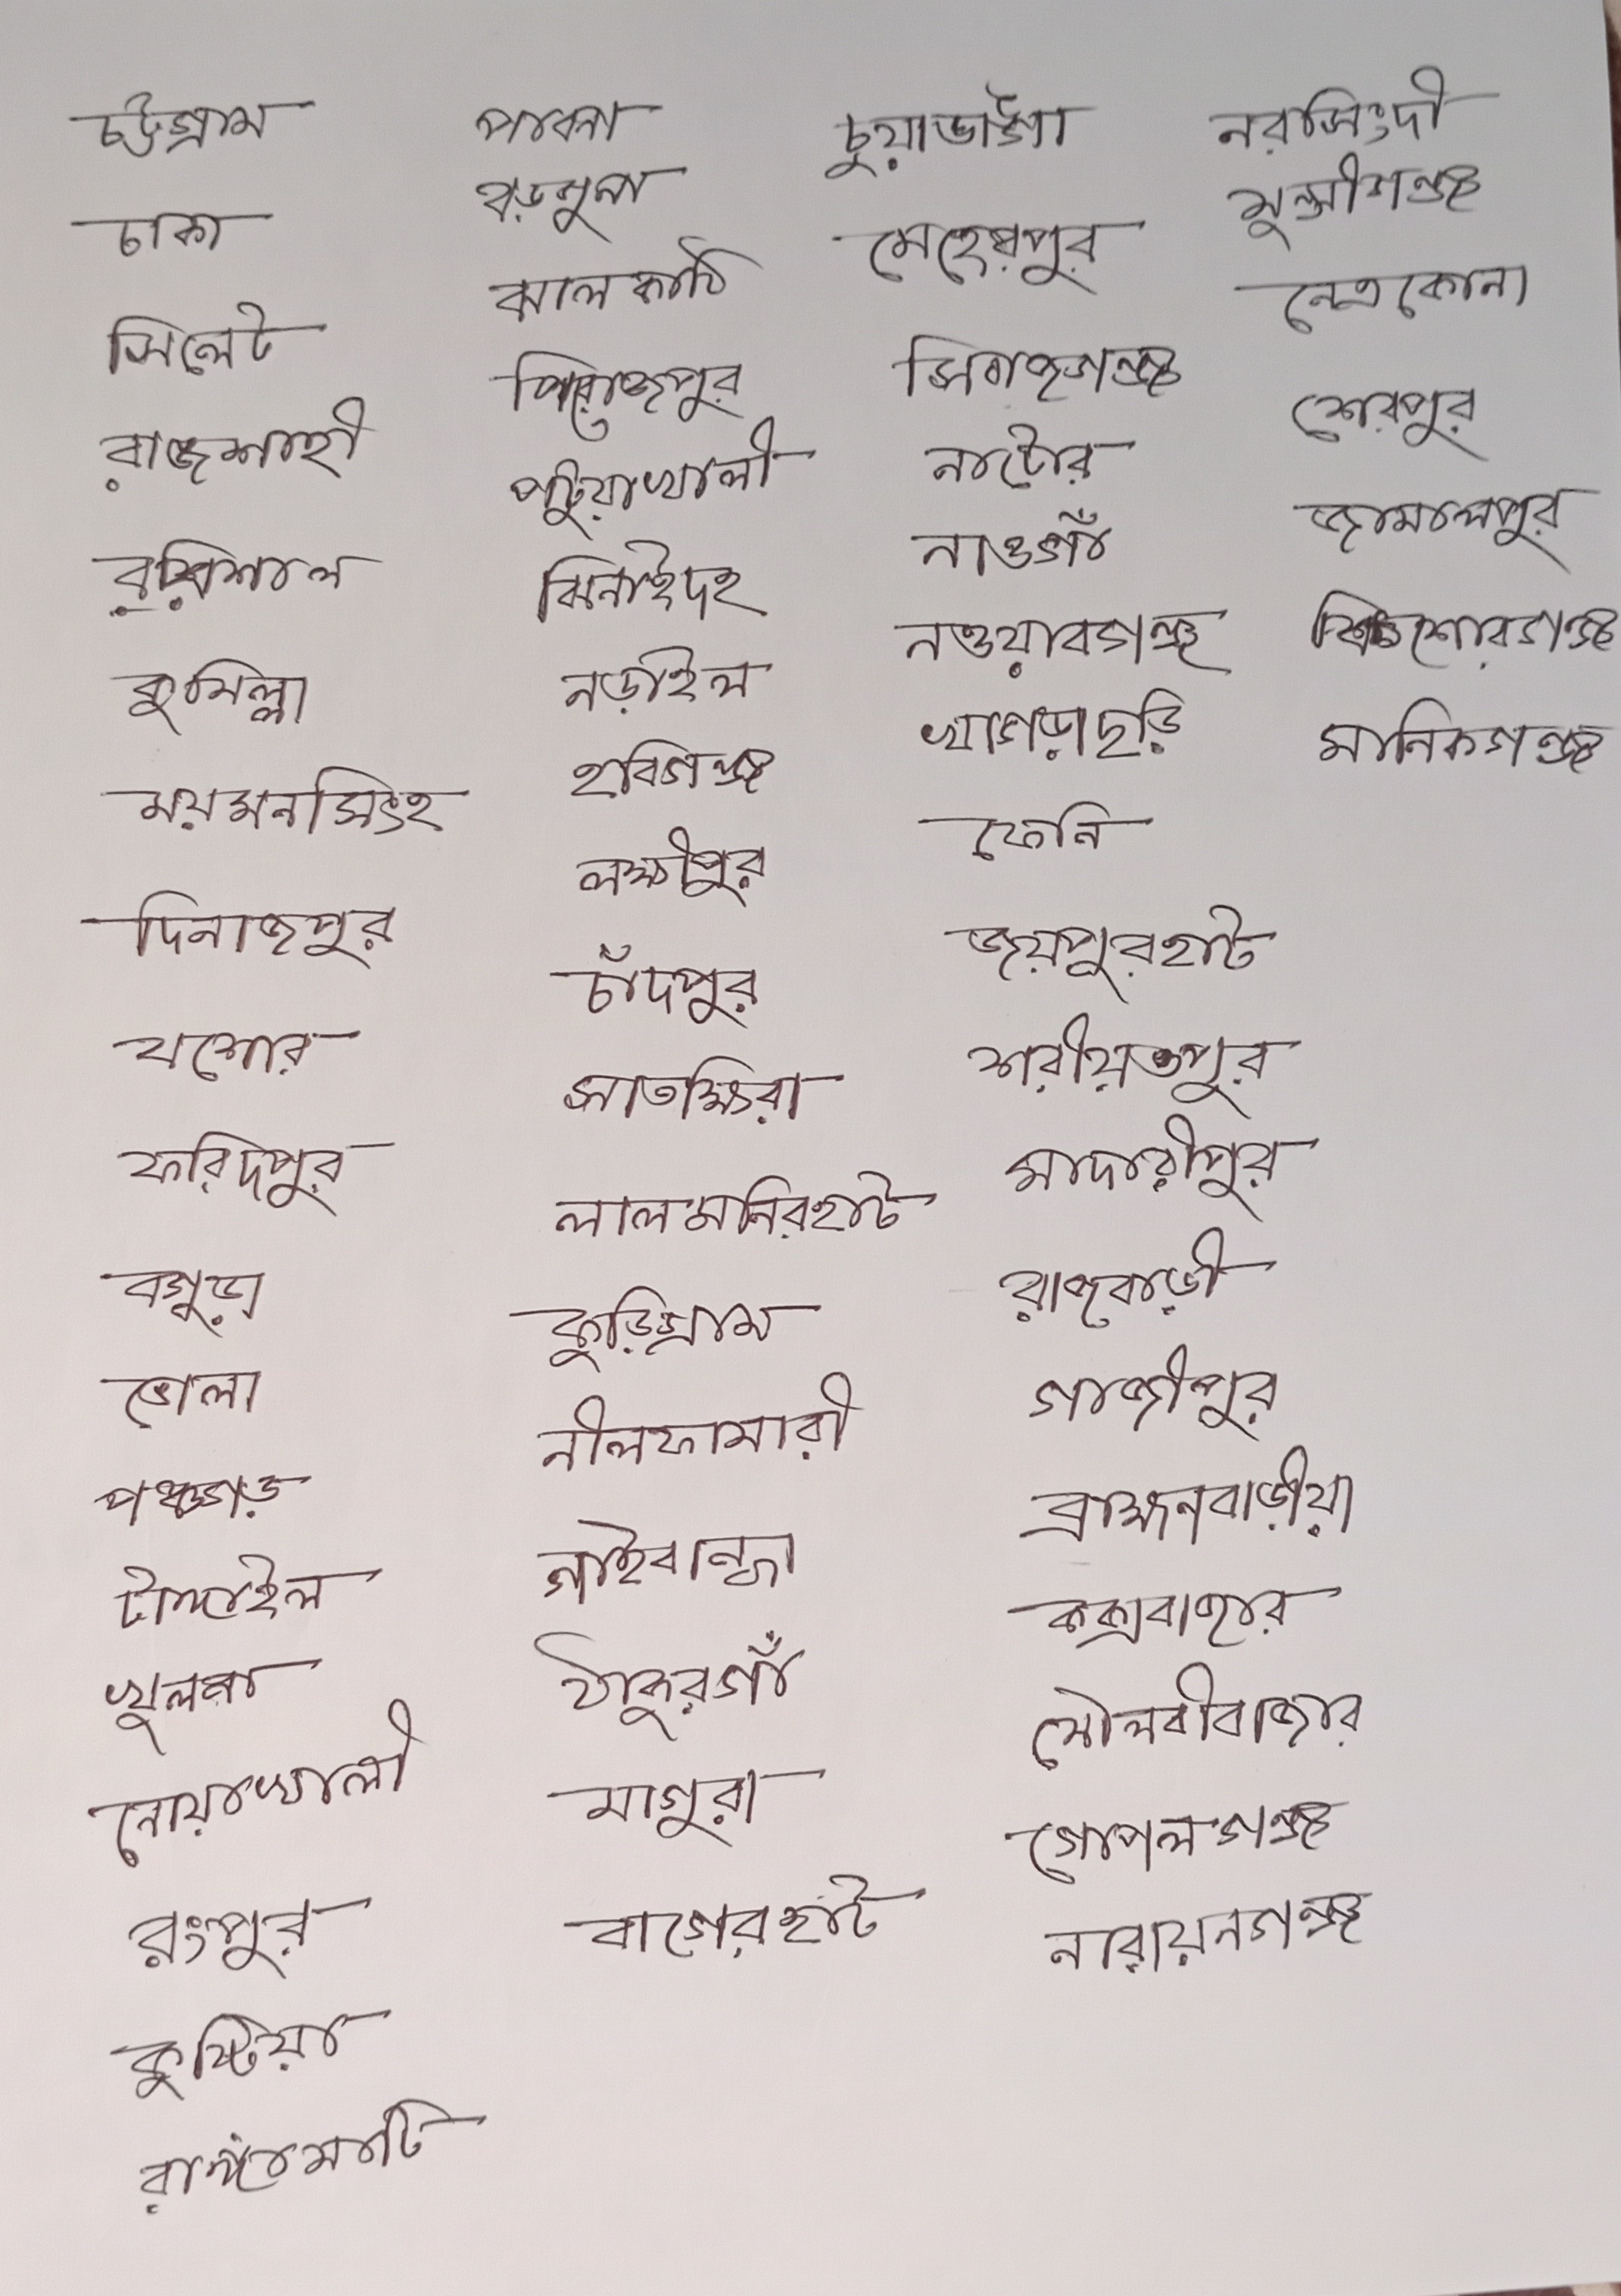 চট্টগ্রাম
ঢাকা
সিলেট
রাজশাহী
বরিশাল
কুমিল্লা
ময়মনসিংহ
দিনাজপুর
যশোর
ফরিদপুর
বগুড়া
ভোলা
পঞ্চগড়
টাঙ্গাইল
খুলনা
নোয়াখালী
রংপুর
কুষ্টিয়া
রাঙ্গামাটি
পাবনা
বড়গুনা
ঝালকাঠি
পিরোজপুর
পটুয়াখালী
ঝিনাইদহ
নড়াইল
হবিগঞ্জ
লক্ষীপুর
চাঁদপুর
সাতক্ষিরা
লালমনিরহাট
কুড়িগ্রাম
নীলফামারী
গাইবান্ধা
ঠাকুরগাঁ
মাগুরা
বাগেরহাট
চুয়াডাঙ্গা
মেহেরপুর
সিরাজগঞ্জ
নাটোর
নাওগাঁ
নওয়াবগঞ্জ
খাগড়াছড়ি
ফেনি
জয়পুরহাট
শরীয়তপুর
মাদারীপুর
রাজবাড়ী
গাজীপুর
ব্রাহ্মনবাড়ীয়া
কক্সবাজার
মৌলবীবাজার
গোপলগঞ্জ
নারায়নগঞ্জ
নরসিংদী
মুন্সীগঞ্জ
নেত্রকোনা
শেরপুর
জামালপুর
কিশোরগঞ্জ
মানিকগঞ্জ